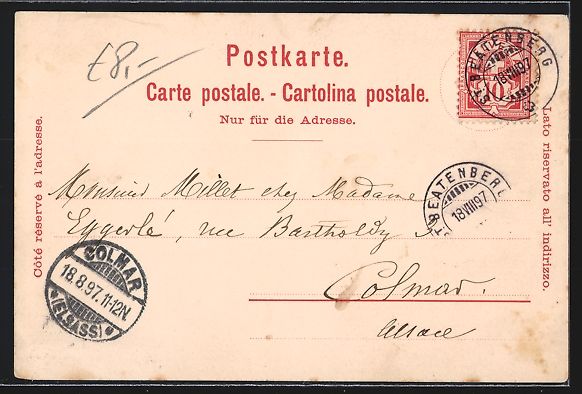 £8,-
Postkarte.
Carte postale. - Cartolina postale.
Nur für die Adresse.
Côté réservé à l'adresse.
Lato riservato all' indirizzo.
10
ST. BEATENBERG
18 VIII 97
T. BEATENBERG
18 VIII 97
Monsieur Millet chez Madame
Eggerlé, rue Bartholdy
Colmar.
Alsace
COLMAR
18.8.97. 11-12N
* (ELSASS) *